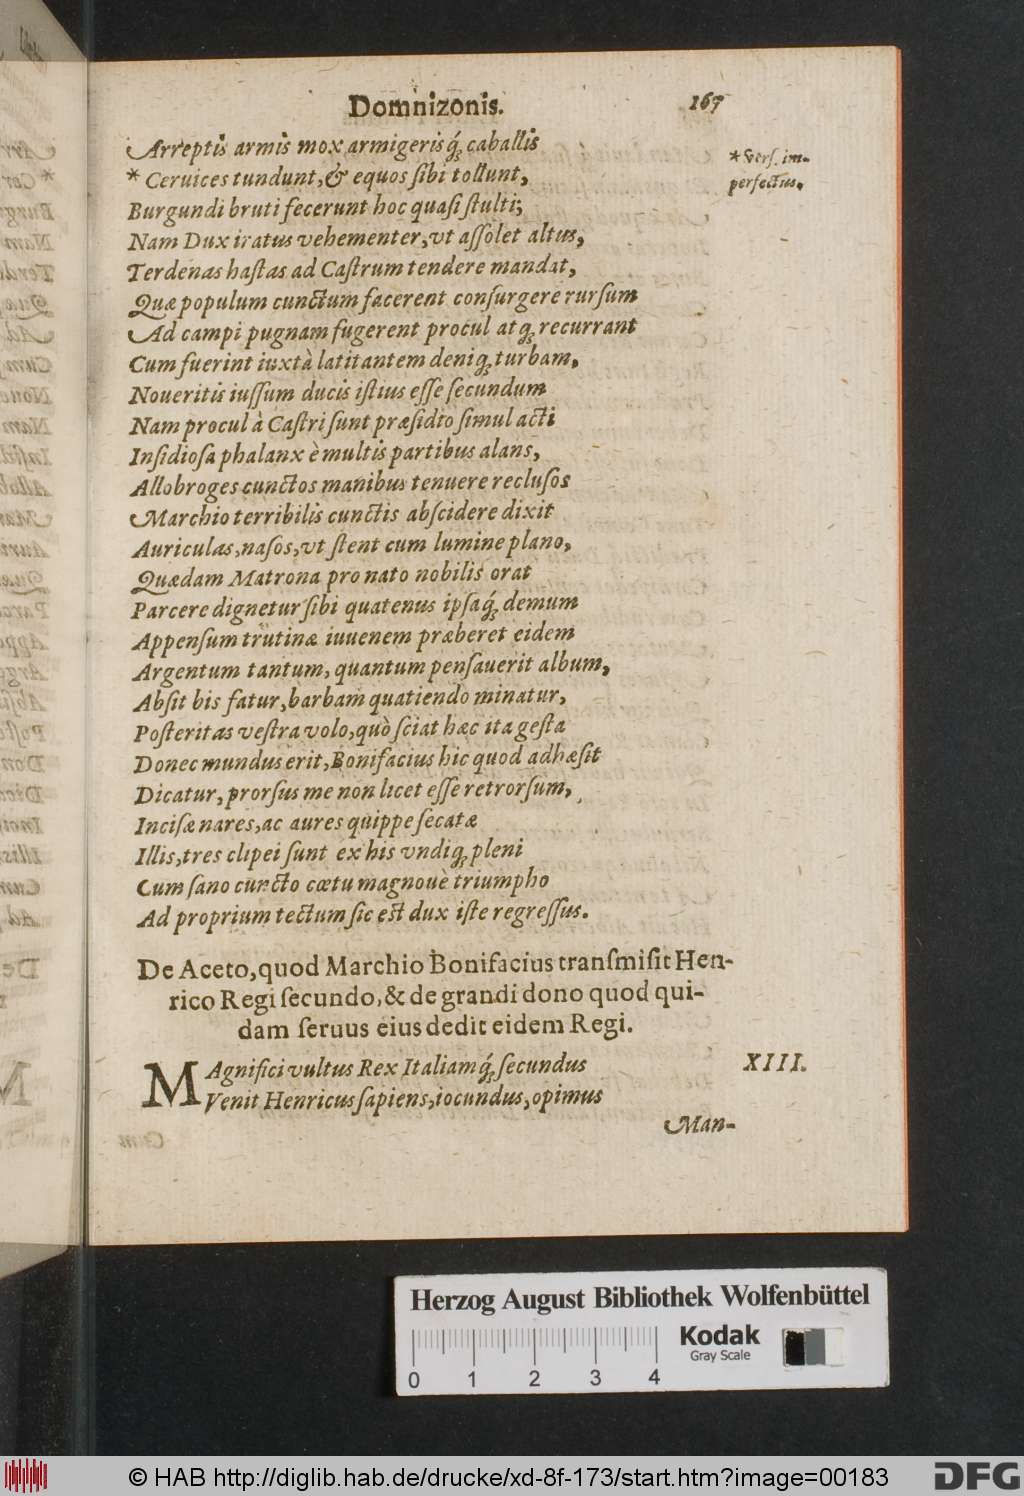 Domnizonis. 167
Arreptis armis mox armigerisq́; caballis
* Ceruices tundunt, & equos ſibi tollunt,
* Verſ. im-
perfectus.
Burgundi bruti fecerunt hoc quaſi ſtulti;
Nam Dux iratus vehementer, vt aſſolet altus,
Terdenas haſtas ad Caſtrum tendere mandat,
Quæ populum cunctum facerent conſurgere rurſum
Ad campi pugnam fugerent procul atq; recurrant
Cum fuerint iuxtà latitantem deniq; turbam,
Noueritis iuſſum ducis iſtius eſſe ſecundum
Nam procul à Caſtri ſunt præſidio ſimul acti
Inſidioſa phalanx è multis partibus alans,
Allobroges cunctos manibus tenuere recluſos
Marchio terribilis cunctis abſcidere dixit
Auriculas, naſos, vt ſtent cum lumine plano,
Quædam Matrona pro nato nobilis orat
Parcere dignetur ſibi quatenus ipſaq́; demum
Appenſum trutinæ iuuenem præberet eidem
Argentum tantum, quantum penſauerit album,
Abſit bis fatur, barbam quatiendo minatur,
Poſteritas veſtra volo, quò ſciat hæc ita geſta
Donec mundus erit, Bonifacius hic quod adhæſit
Dicatur, prorſus me non licet eſſe retrorſum,
Inciſæ nares, ac aures quippe ſecatæ
Illis, tres clipei ſunt ex his vndiq; pleni
Cum ſano cuncto cœtu magnouè triumpho
Ad proprium tectum ſic eſt dux iſte regreſſus.
De Aceto, quod Marchio Bonifacius tranſmiſit Hen-
rico Regi ſecundo, & de grandi dono quod qui-
dam ſeruus eius dedit eidem Regi.
MAgnifici vultus Rex Italiamq́; ſecundus XIII.
Venit Henricus ſapiens, iocundus, opimus
Man-
Herzog August Bibliothek Wolfenbüttel
Kodak
Gray Scale
0 1 2 3 4
© HAB http://diglib.hab.de/drucke/xd-8f-173/start.htm?image=00183
DFG